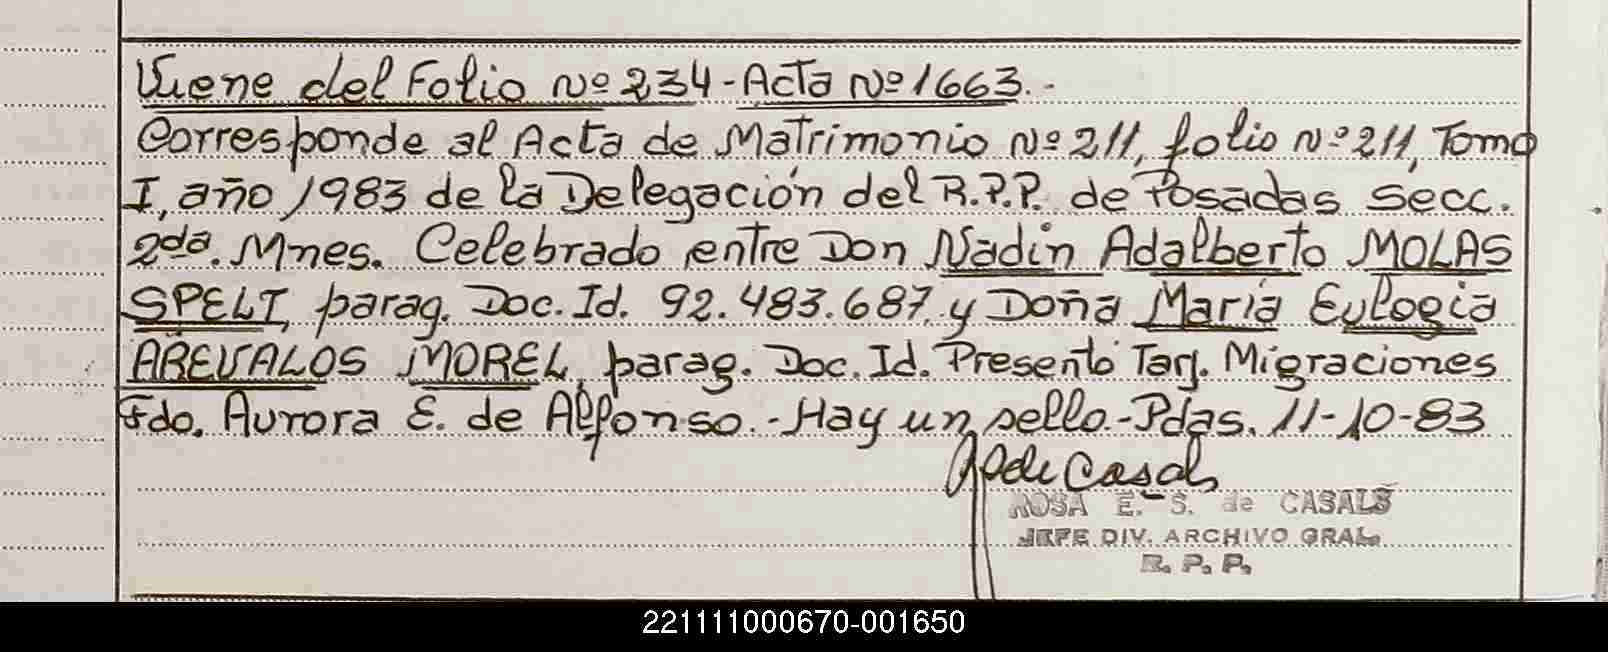 Viene del Folio Nº 234 - Acta Nº 1663.-
Corresponde al Acta de Matrimonio Nº 211, folio Nº 211, Tomo
I, año 1983 de la Delegación del R.P.P. de Posadas Secc.
2da. Mnes. Celebrado entre Don Nadin Adalberto MOLAS
SPELT, parag. Doc. Id. 92.483.687, y Doña María Eulogia
AREVALOS MOREL, parag. Doc. Id. Presentó Tarj. Migraciones
Fdo. Aurora E. de Alfonso.- Hay un sello.- Pdas. 11-10-83
de Casals
ROSA E. S. de CASALS
JEFE DIV. ARCHIVO GRAL.
R. P. P.
221111000670-001650